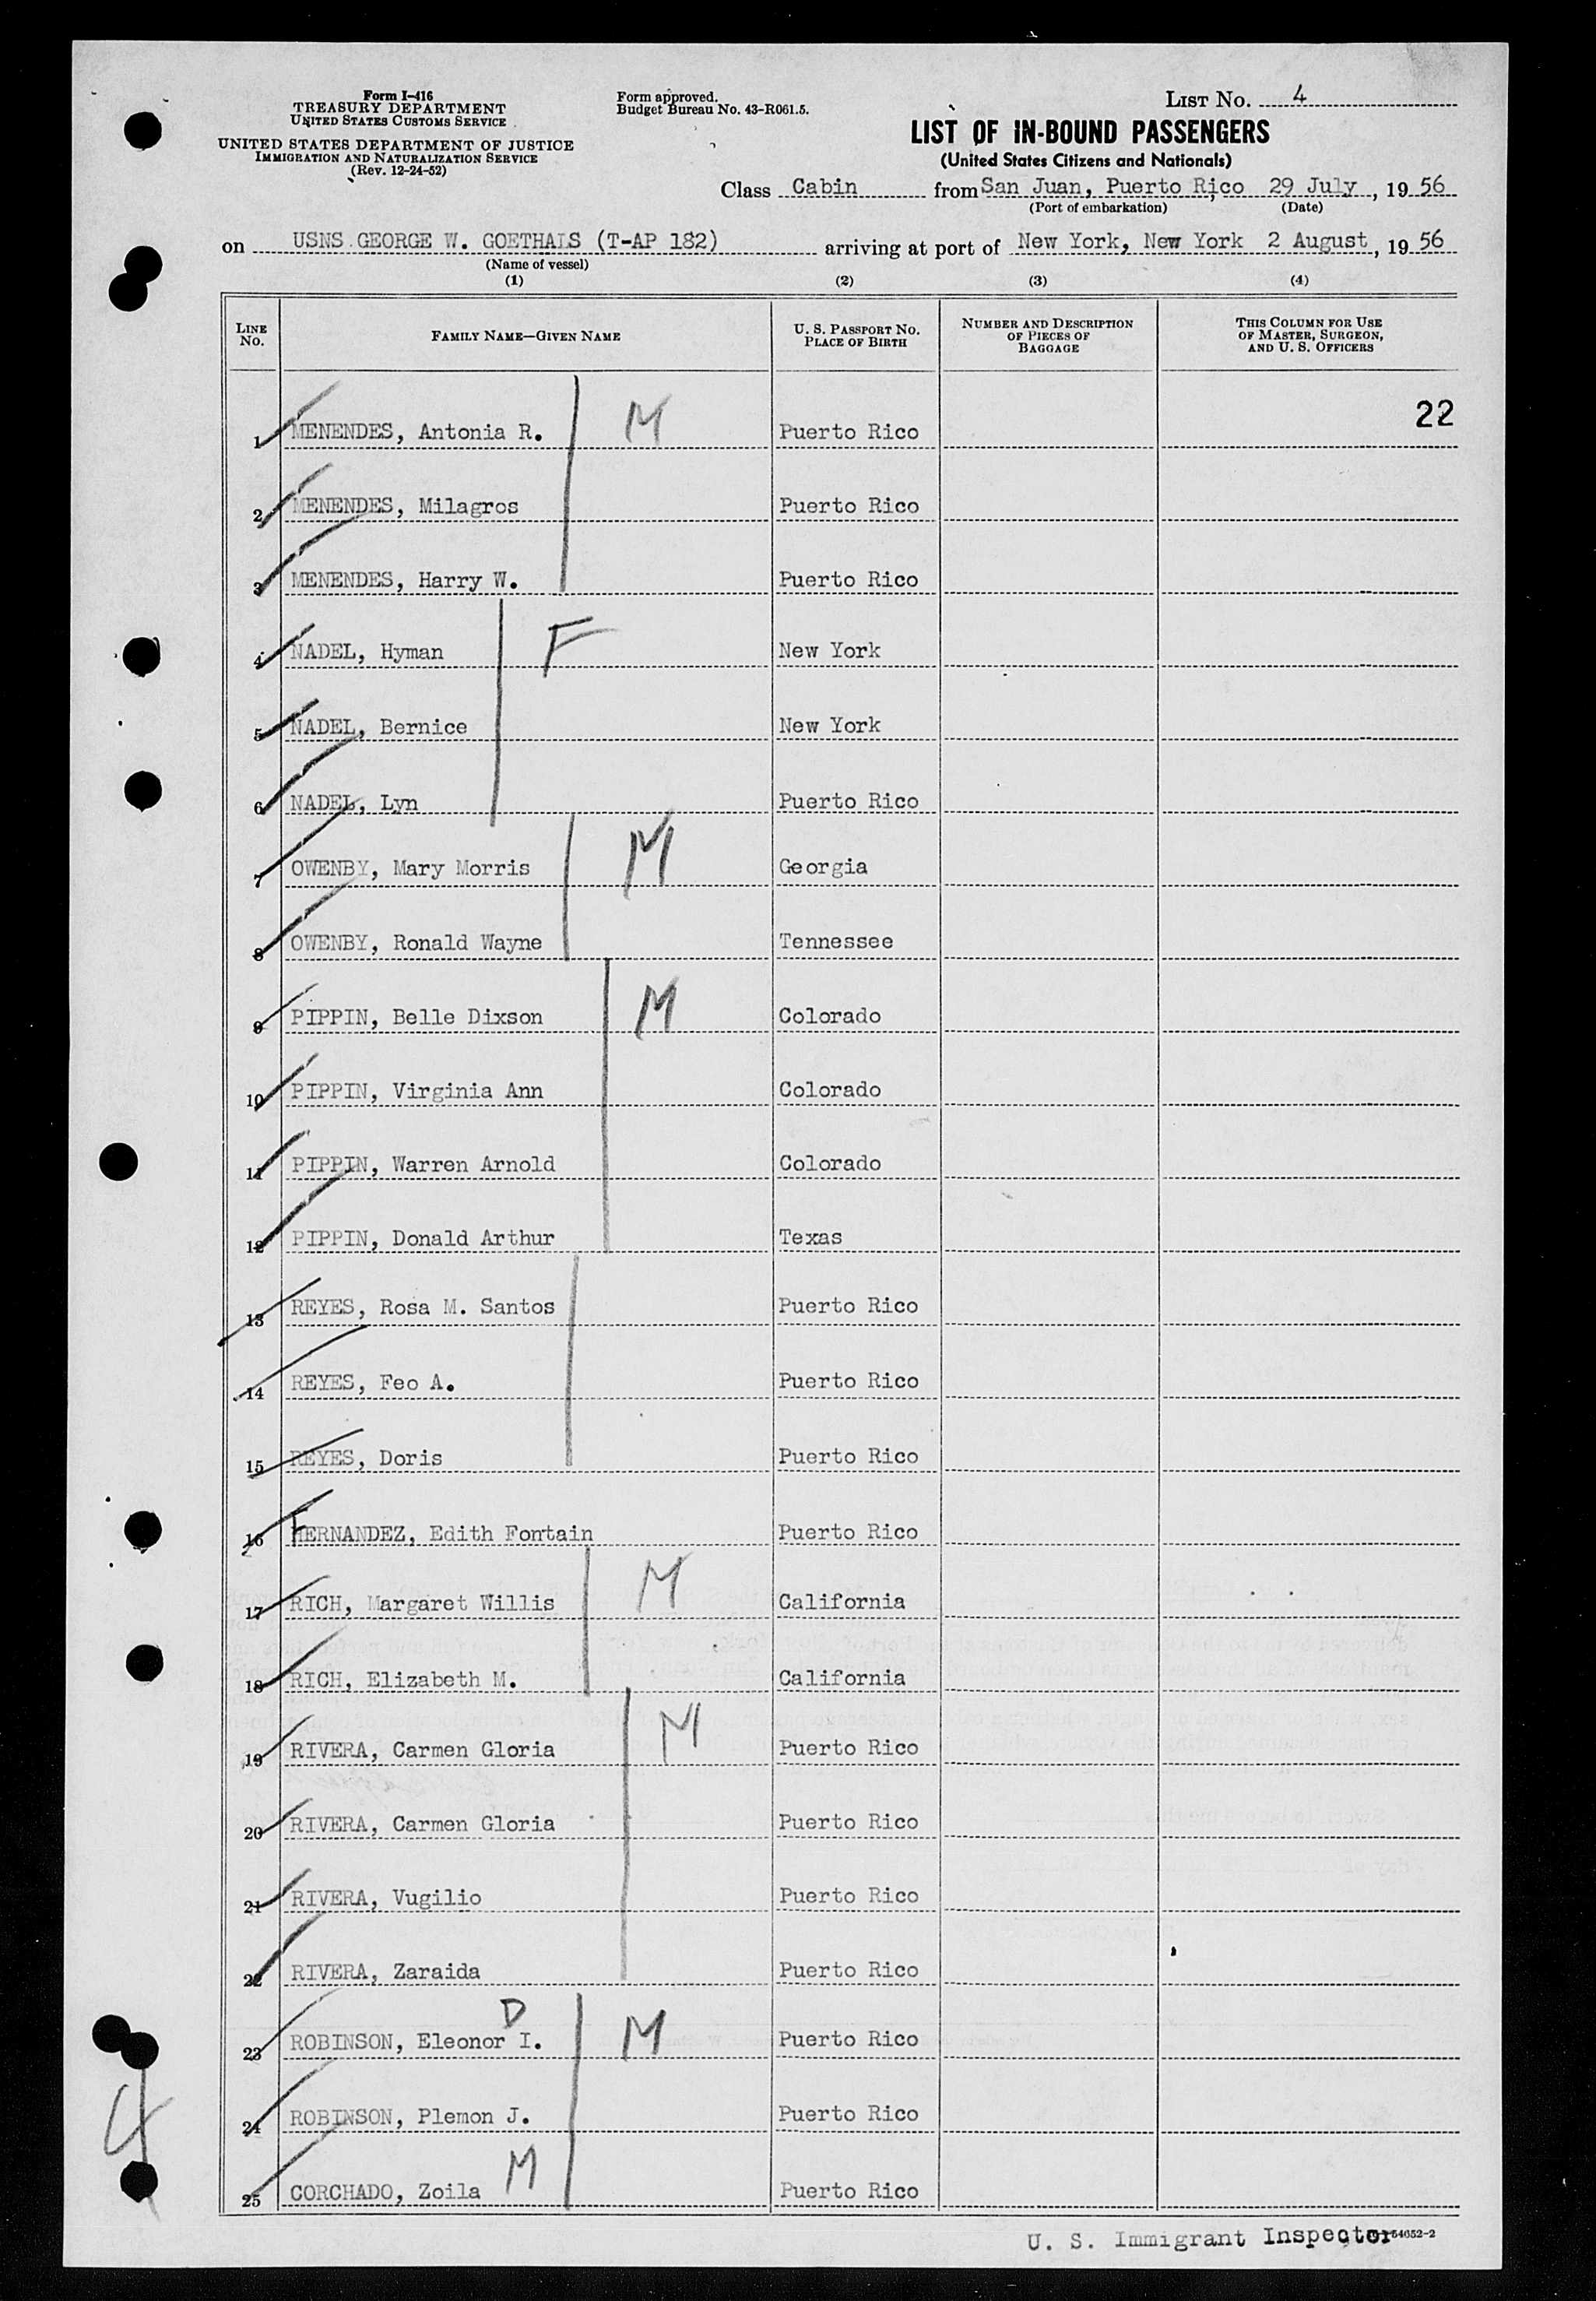 Form I-416
TREASURY DEPARTMENT
UNITED STATES CUSTOMS SERVICE
UNITED STATES DEPARTMENT OF JUSTICE
IMMIGRATION AND NATURALIZATION SERVICE
(Rev. 12-24-52)
Form approved.
Budget Bureau No. 43-R061.5.
LIST No. 4
LIST OF IN-BOUND PASSENGERS
(United States Citizens and Nationals)
Class Cabin from San Juan, Puerto Rico, 29 July, 19 56
(Port of embarkation) (Date)
on USNS GEORGE W. GOETHALS (T-AP 182) arriving at port of New York, New York 2 August, 19 56
(Name of vessel)
(1) (2) (3) (4)
LINE No. FAMILY NAME—GIVEN NAME U. S. PASSPORT No. PLACE OF BIRTH NUMBER AND DESCRIPTION OF PIECES OF BAGGAGE THIS COLUMN FOR USE OF MASTER, SURGEON, AND U. S. OFFICERS
22
1 MENENDES, Antonia R. M Puerto Rico
2 MENENDES, Milagros Puerto Rico
3 MENENDES, Harry W. Puerto Rico
4 NADEL, Hyman F New York
5 NADEL, Bernice New York
6 NADEL, Lyn Puerto Rico
7 OWENBY, Mary Morris M Georgia
8 OWENBY, Ronald Wayne Tennessee
9 PIPPIN, Belle Dixson M Colorado
10 PIPPIN, Virginia Ann Colorado
11 PIPPIN, Warren Arnold Colorado
12 PIPPIN, Donald Arthur Texas
13 REYES, Rosa M. Santos Puerto Rico
14 REYES, Feo A. Puerto Rico
15 REYES, Doris Puerto Rico
16 FERNANDEZ, Edith Fontain Puerto Rico
17 RICH, Margaret Willis M California
18 RICH, Elizabeth M. California
19 RIVERA, Carmen Gloria M Puerto Rico
20 RIVERA, Carmen Gloria Puerto Rico
21 RIVERA, Vugilio Puerto Rico
22 RIVERA, Zaraida Puerto Rico
D
23 ROBINSON, Eleonor I. M Puerto Rico
24 ROBINSON, Plemon J. Puerto Rico
25 CORCHADO, Zoila M Puerto Rico
4
U. S. Immigrant Inspector 54652-2